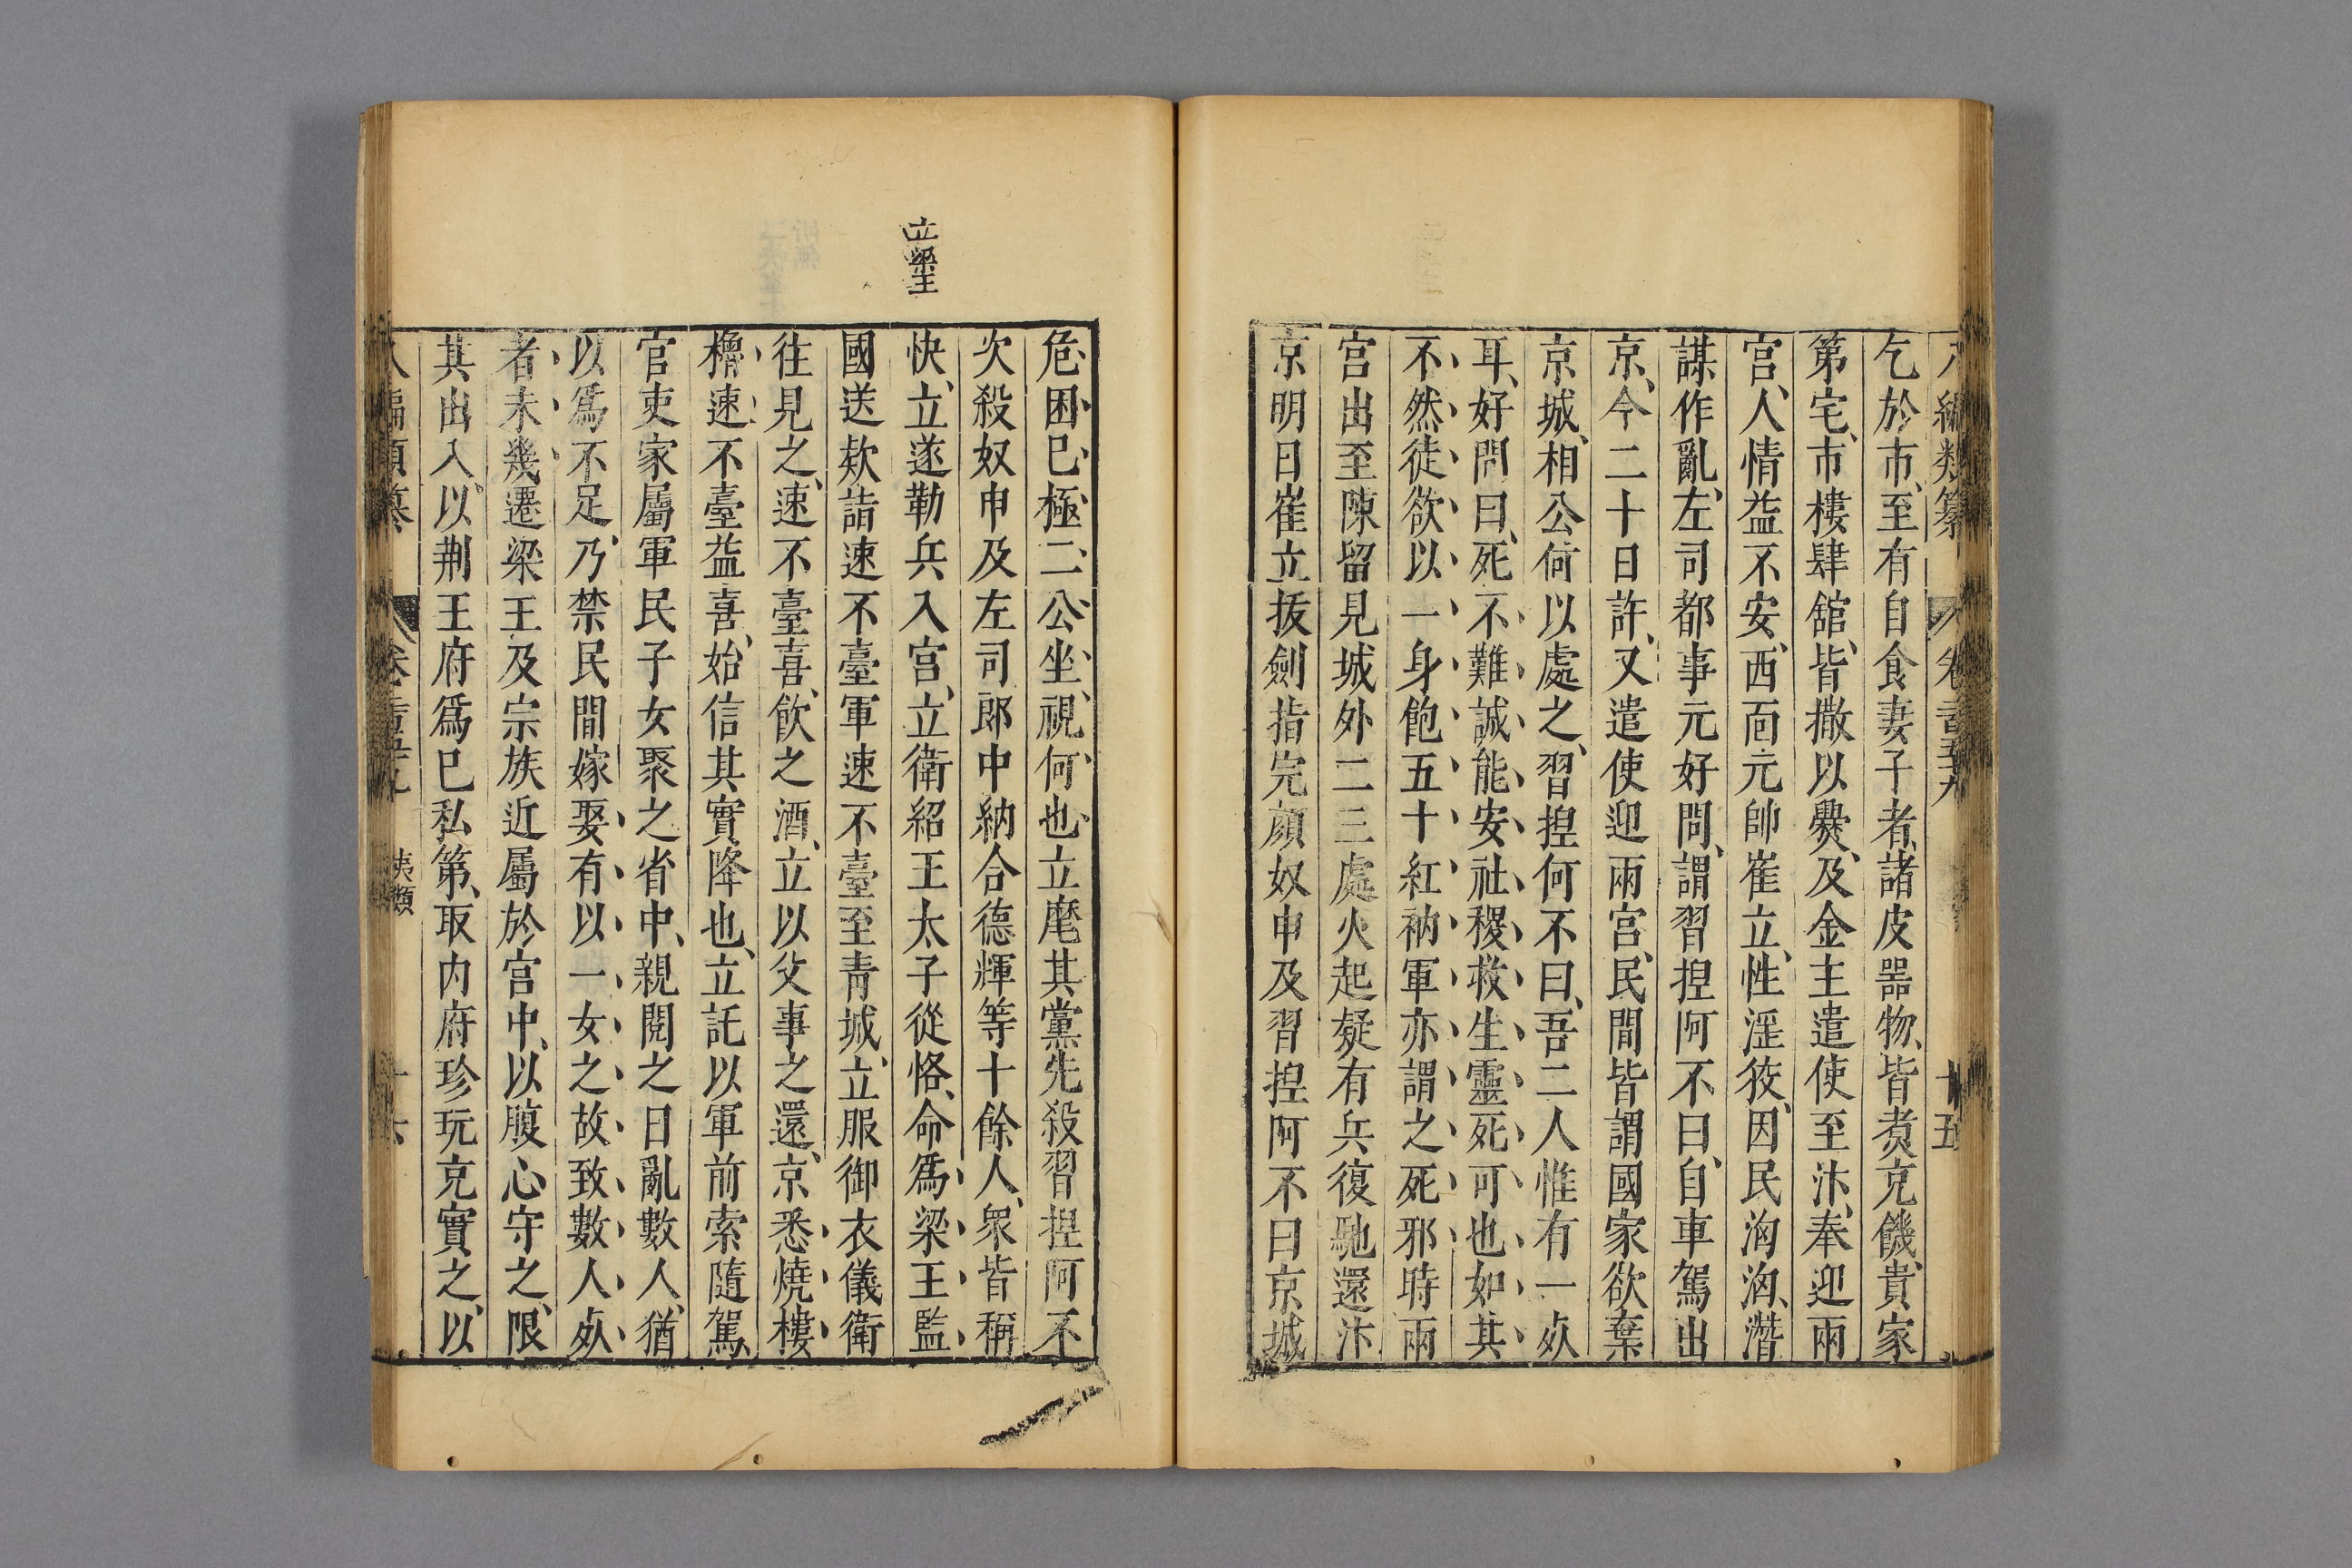 八編類纂 卷一百五十九 十五
乞於市至有自食妻子者諸皮器物皆煑充饑貴家
第宅市樓肆舘皆撒以㸑及金主遣使至汴奉迎兩
宫人情益不安西面元帥崔立性淫狡因民洶洶潛
謀作亂左司都事元好問謂習揑阿不曰自車駕出
京今二十日許又遣使迎兩宫民間皆謂國家欲棄
京城相公何以處之習揑何不曰吾二人惟有一死
耳好問曰死不難誠能安社稷救生靈死可也如其
不然徒欲以一身飽五十紅衲軍亦謂之死邪時兩
宫出至陳留見城外二三處火起疑有兵復馳還汴
京明日崔立拔劍指完顏奴申及習揑阿不曰京城
危困巳極二公坐視何也立麾其黨先殺習揑阿不
次殺奴申及左司郎中納合德輝等十餘人衆皆稱
快立遂勒兵入宫立衛紹王太子從恪命爲梁王監
國送欵詣速不臺軍速不臺至青城立服御衣儀衛
徃見之速不臺喜飲之酒立以父事之還京悉燒樓
櫓速不臺益喜始信其實降也立託以軍前索隨駕
官吏家屬軍民子女聚之省中親閱之日亂數人猶
以爲不足乃禁民間嫁娶有以一女之故致數人死
者未幾遷梁王及宗族近屬於宫中以腹心守之限
其出入以荆王府爲巳私第取内府珍玩充實之以
八編類纂 卷一百五十九 夷類 十六
立梁王